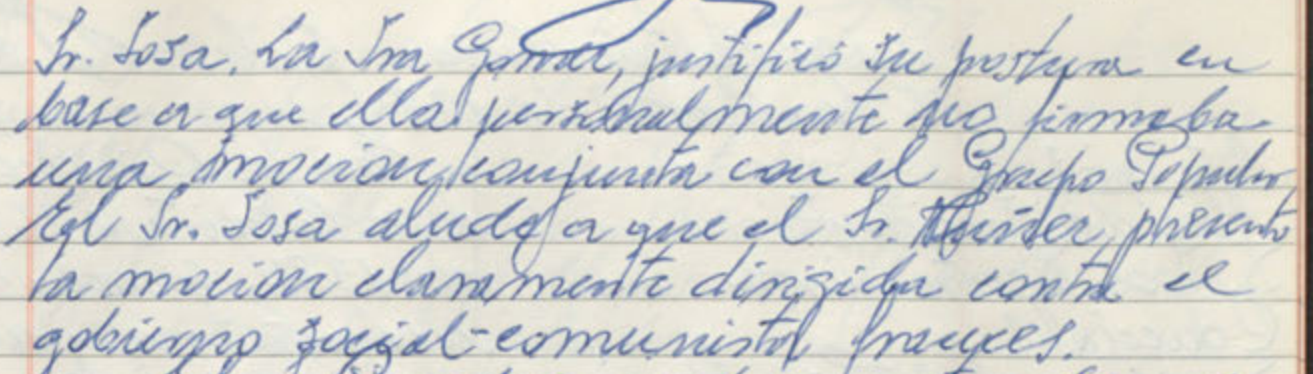 Sr. Sosa. La Sra Gomez, justificó su postura en
base a que ella personalmente no firmaba
una mocion conjunta con el Grupo Popular
El Sr. Sosa alude a que el Sr. presento
la mocion claramente dirigida contra el
gobierno social-comunista frances.